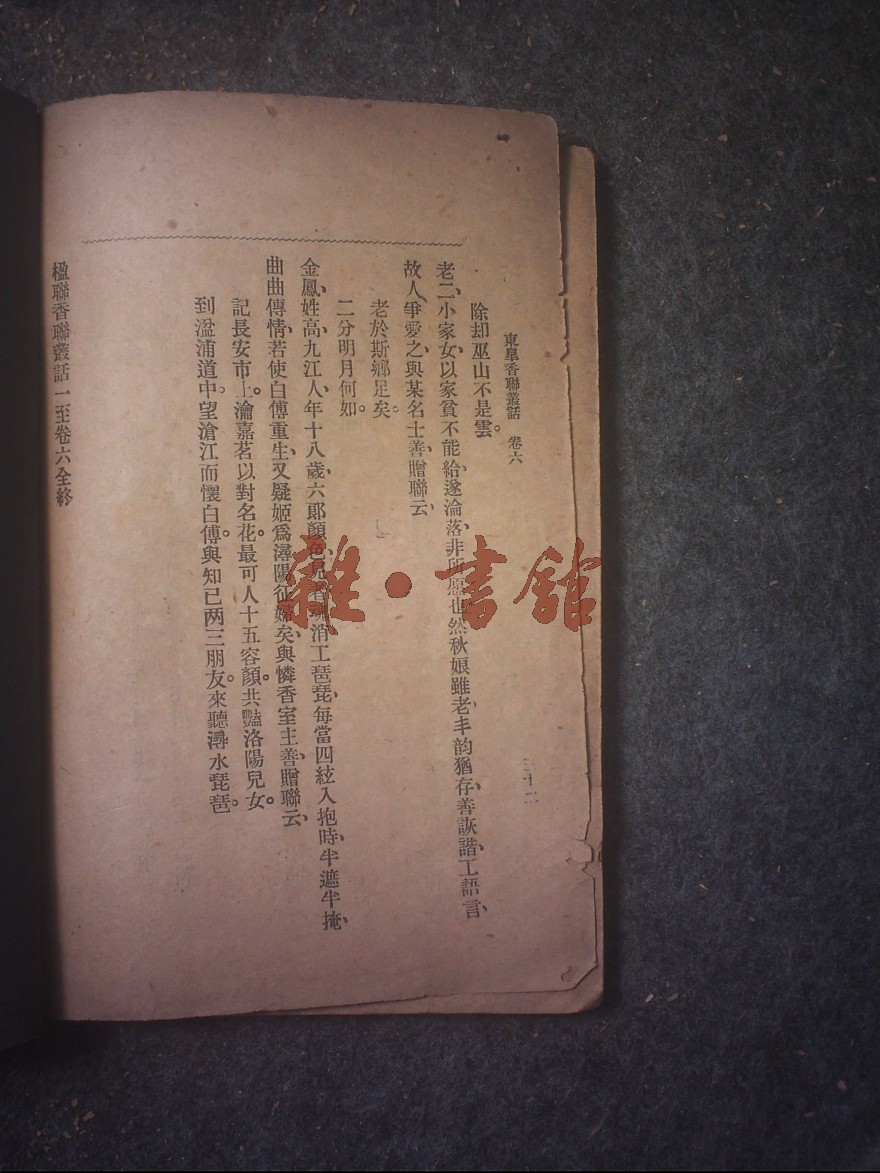 東皐香聯叢話 卷六
三十二
除却巫山不是雲。
老二、小家女、以家貧不能給、遂淪落、非所愿也、然秋娘雖老、丰韵猶存、善詼諧、工語言、
故人爭愛之、與某名士善、贈聯云、
老於斯鄉足矣。
二分明月何如。
金鳳、姓高、九江人、年十八歲、六郎顏色、見者魂消、工琵琶、每當四絃入抱時、半遮半掩、
曲曲傳情、若使白傅重生、又疑姬爲潯陽征婦矣、與憐香室主善、贈聯云、
記長安市上。瀹嘉茗以對名花。最可人十五容顏。共豔洛陽兒女。
到湓浦道中。望滄江而懷白傅。與知已两三朋友。來聽潯水琵琶。
楹聯香聯叢話一至卷六全終
雜·書館